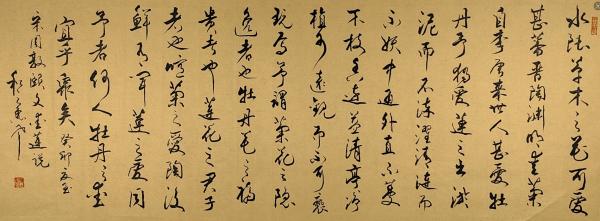 水陆草木之花可爱
甚蕃晋陶渊明爱菊
自李唐来世人甚爱牡
丹予独爱莲之出淤
泥而不染濯清涟而
不妖中通外直不蔓
不枝香远益清亭净
植可远观而不可亵
玩焉予谓菊花之隐
逸者也牡丹花之富
贵者也莲花之君子
者也噫菊之爱陶后
鲜有闻莲之爱同
予者何人牡丹之爱
宜乎众矣 癸卯夏至
宋周敦颐文爱莲说